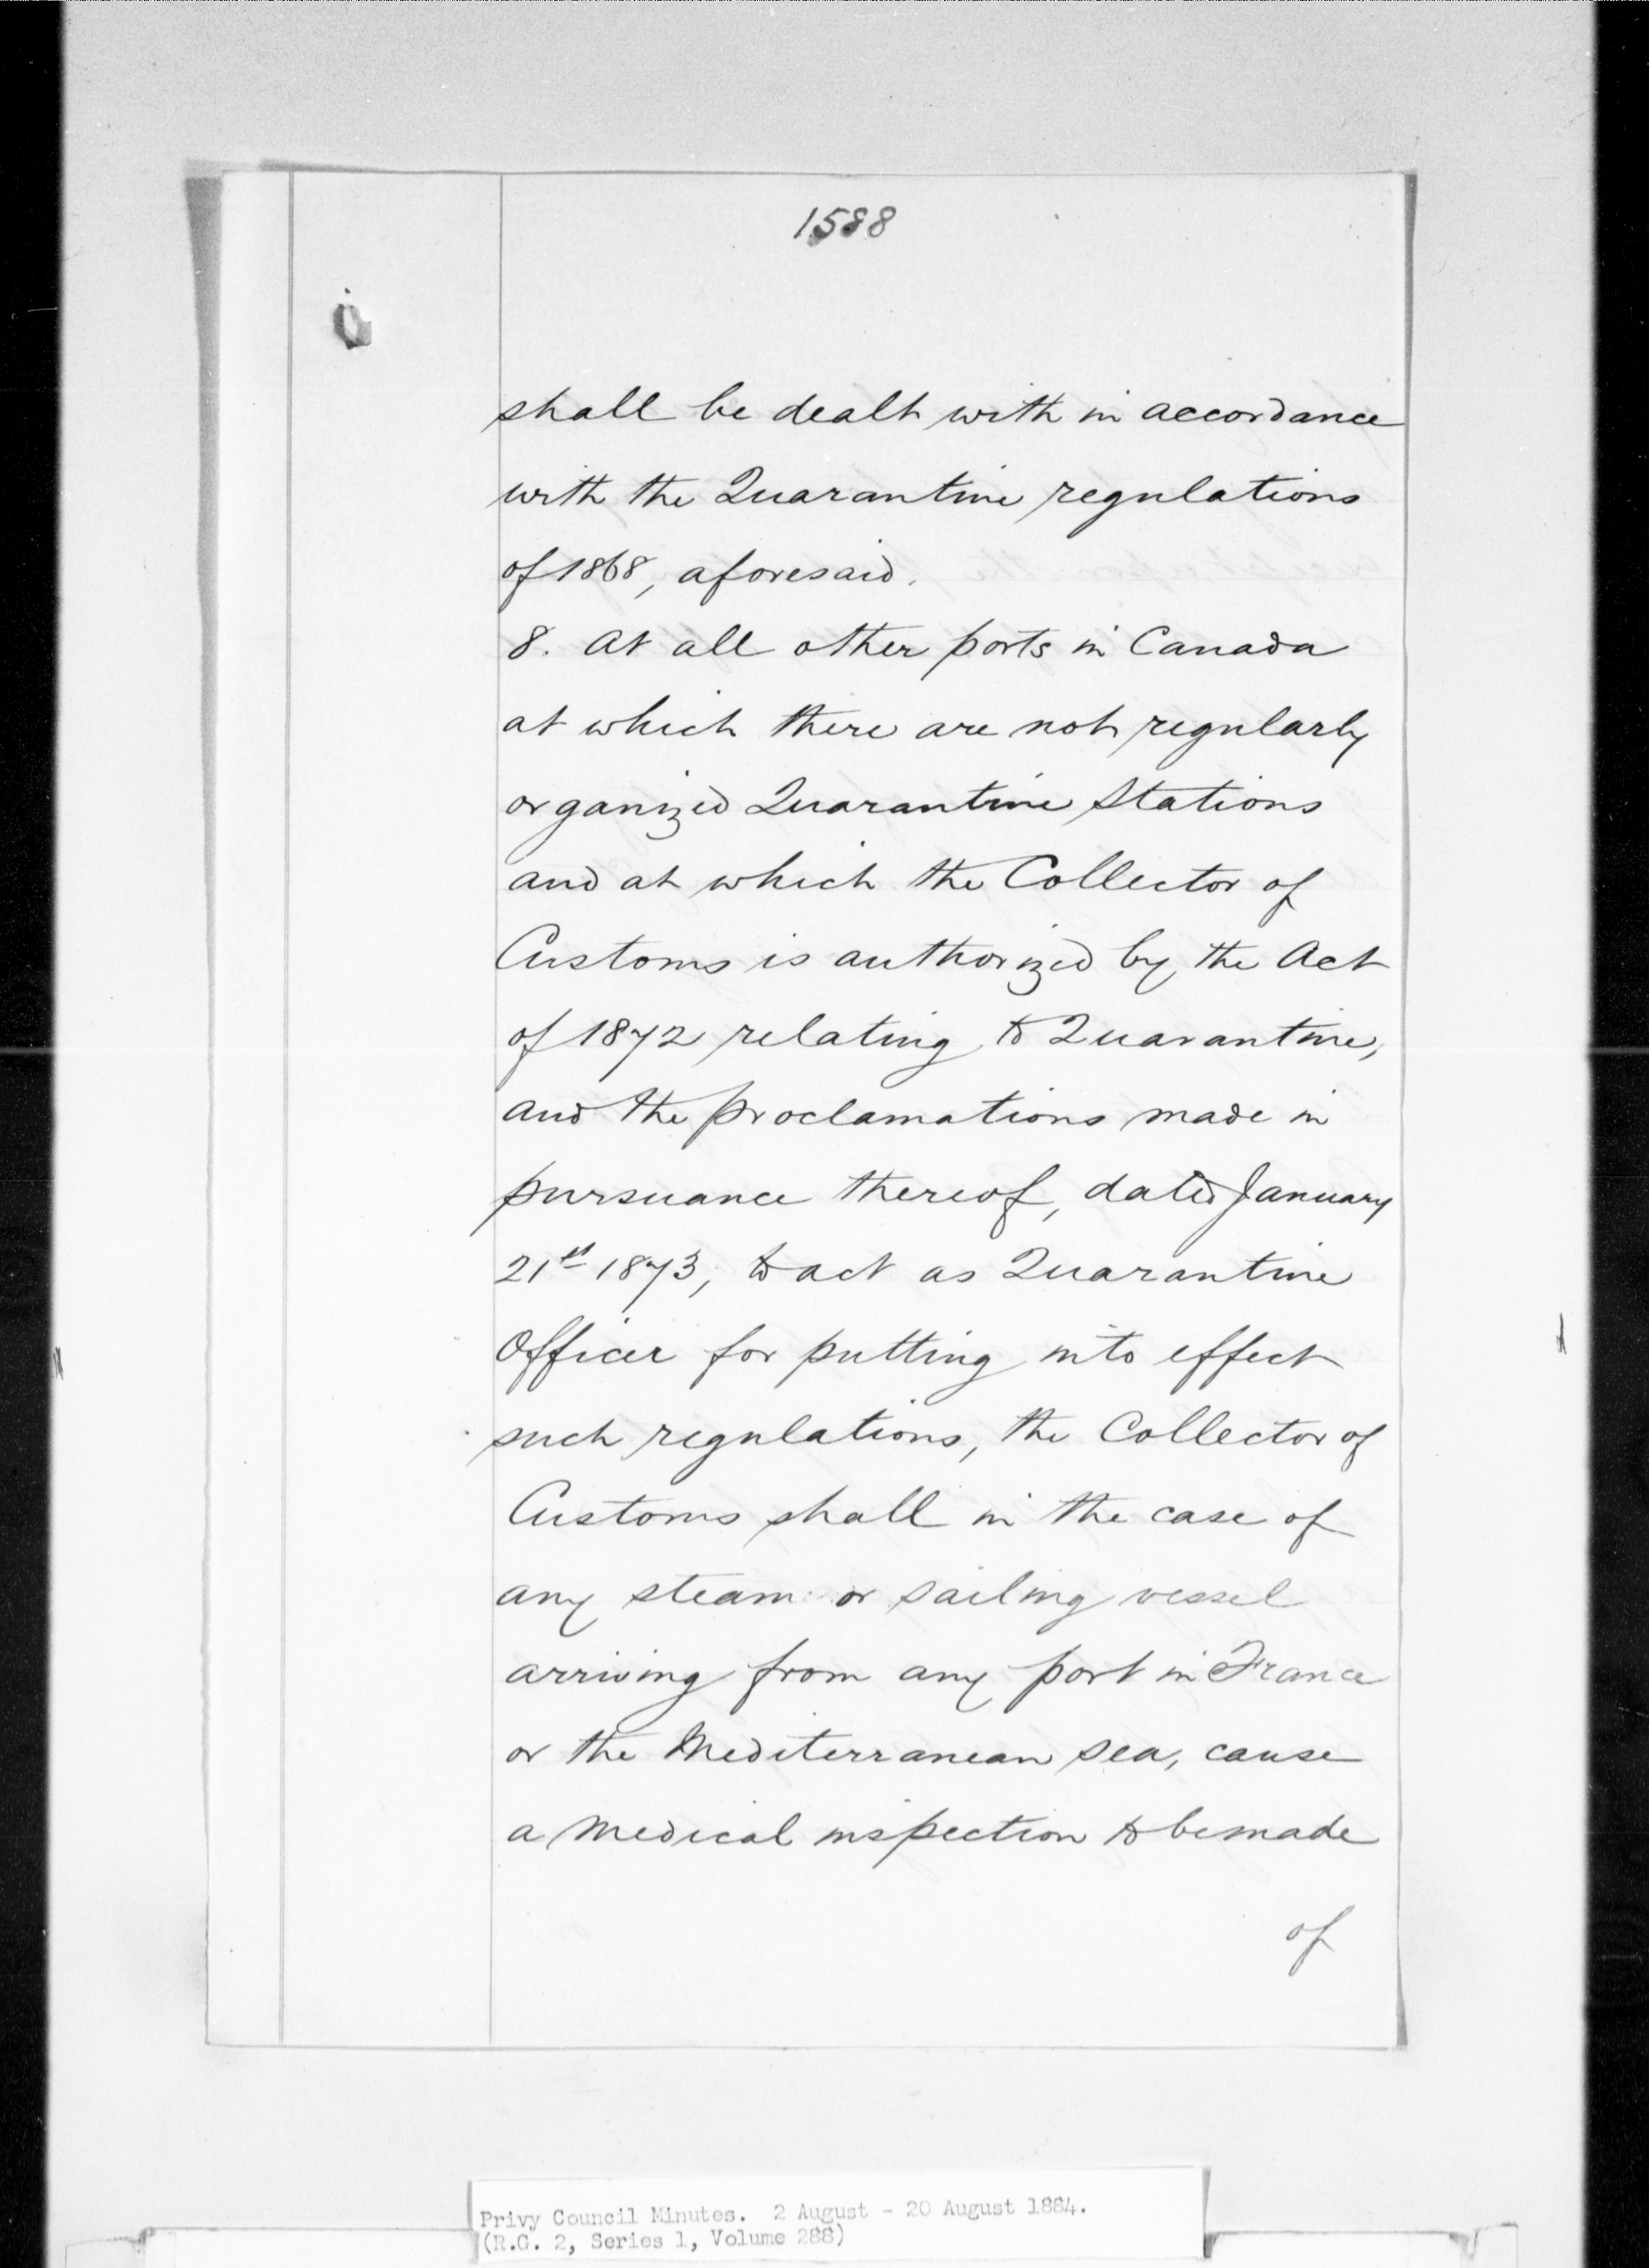 1588
shall be dealt with in accordance
with the Quarantine regulations
of 1868, aforesaid.
8. At all other ports in Canada
at which there are not regularly
organized Quarantine Stations
and at which the Collector of
Customs is authorized by the Act
of 1872 relating to Quarantine,
and the proclamations made in
pursuance thereof, dated January
21st 1873, to act as Quarantine
Officer for putting into effect
such regulations, the Collector of
Customs shall in the case of
any steam or sailing vessel
arriving from any port in France
or the Mediterranean sea, cause
a medical inspection to be made
of
Privy Council Minutes. 2 August - 20 August 1884.
(R.G. 2, Series 1, Volume 288)